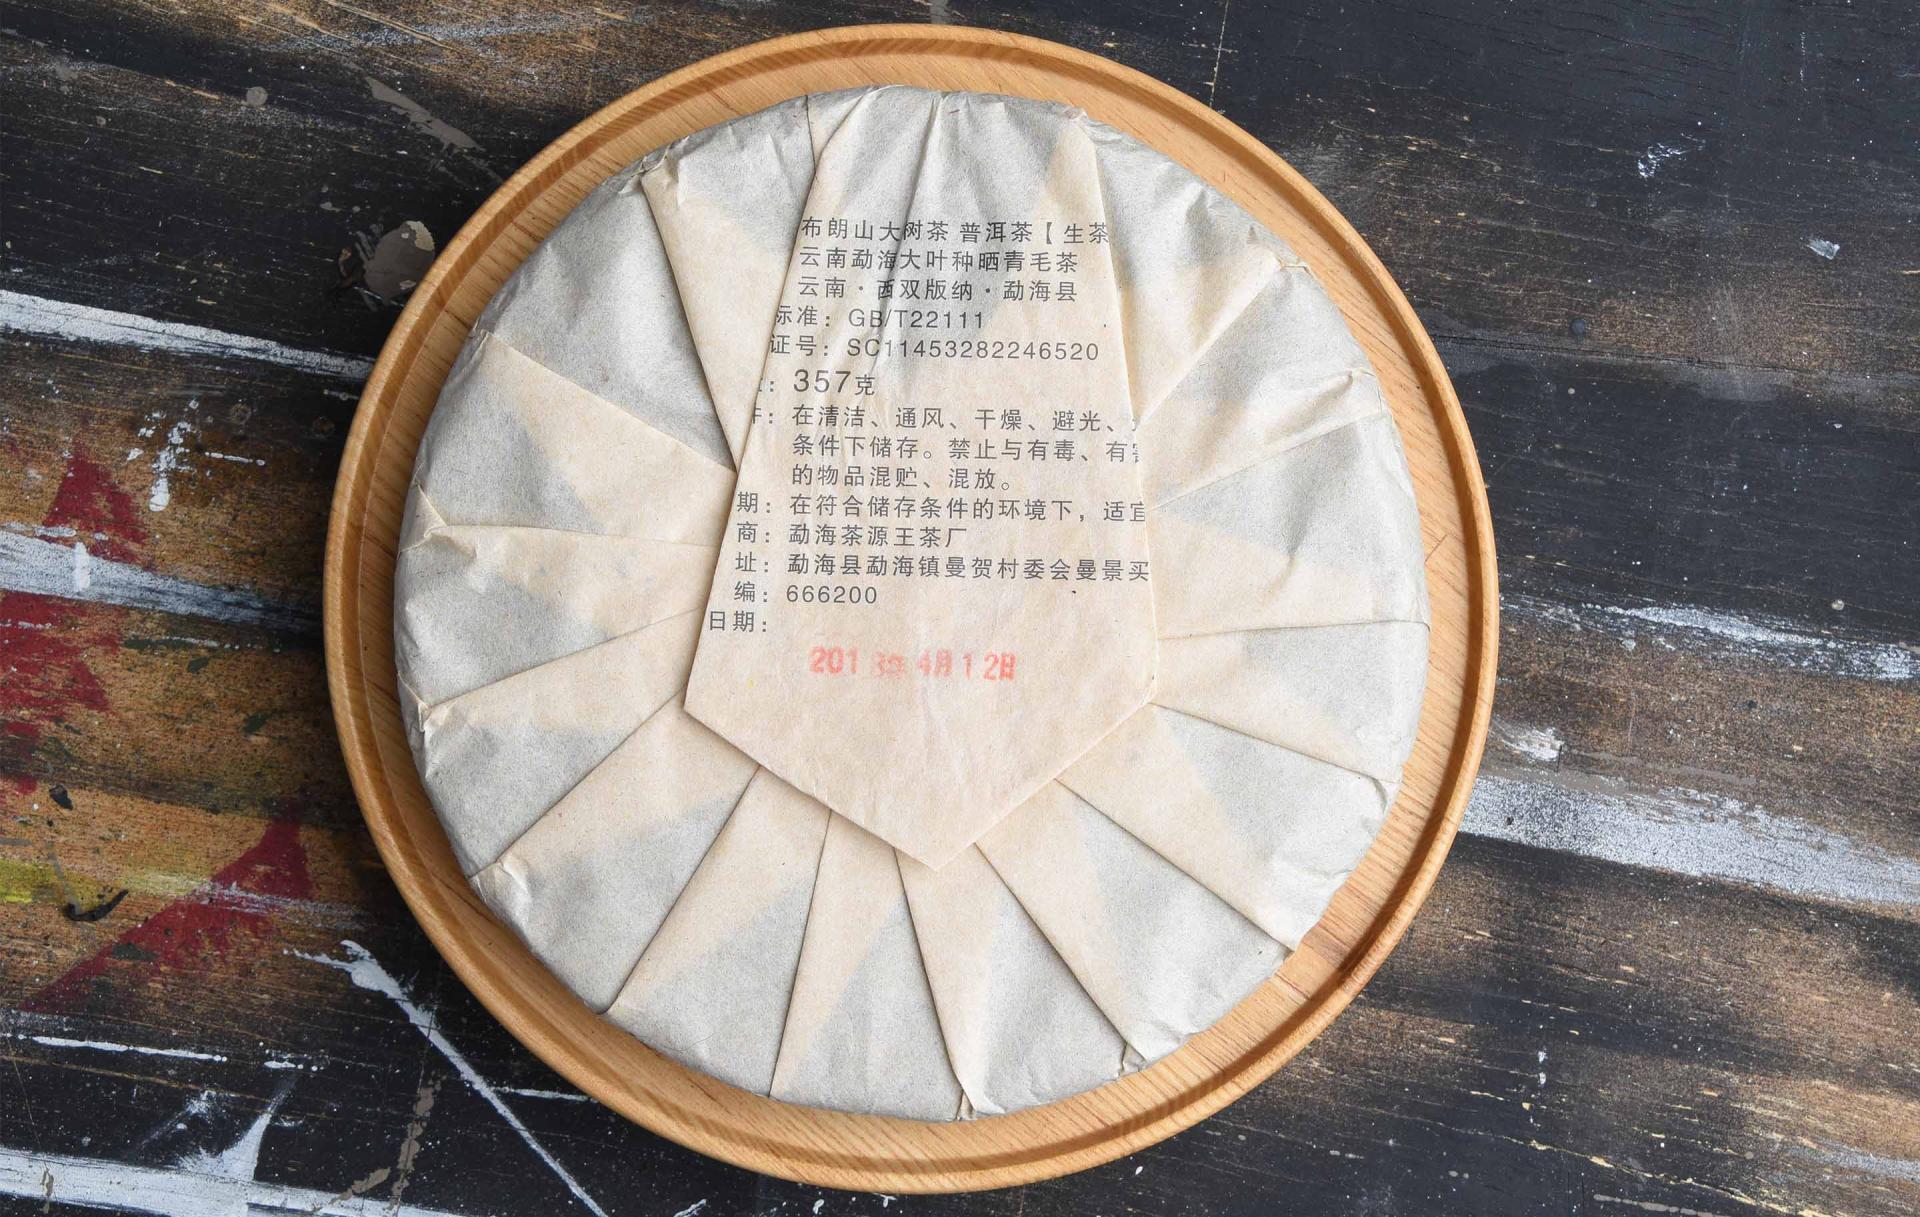 布朗山大树茶 普洱茶【生茶
云南勐海大叶种晒青毛茶
云南·西双版纳·勐海县
标准：GB/T22111
证号：SC11453282246520
：357克
：在清洁、通风、干燥、避光、
条件下储存。禁止与有毒、有害
的物品混贮、混放。
期：在符合储存条件的环境下，适宜
商：勐海茶源王茶厂
址：勐海县勐海镇曼贺村委会曼景买
编：666200
日期：
2018年4月12日